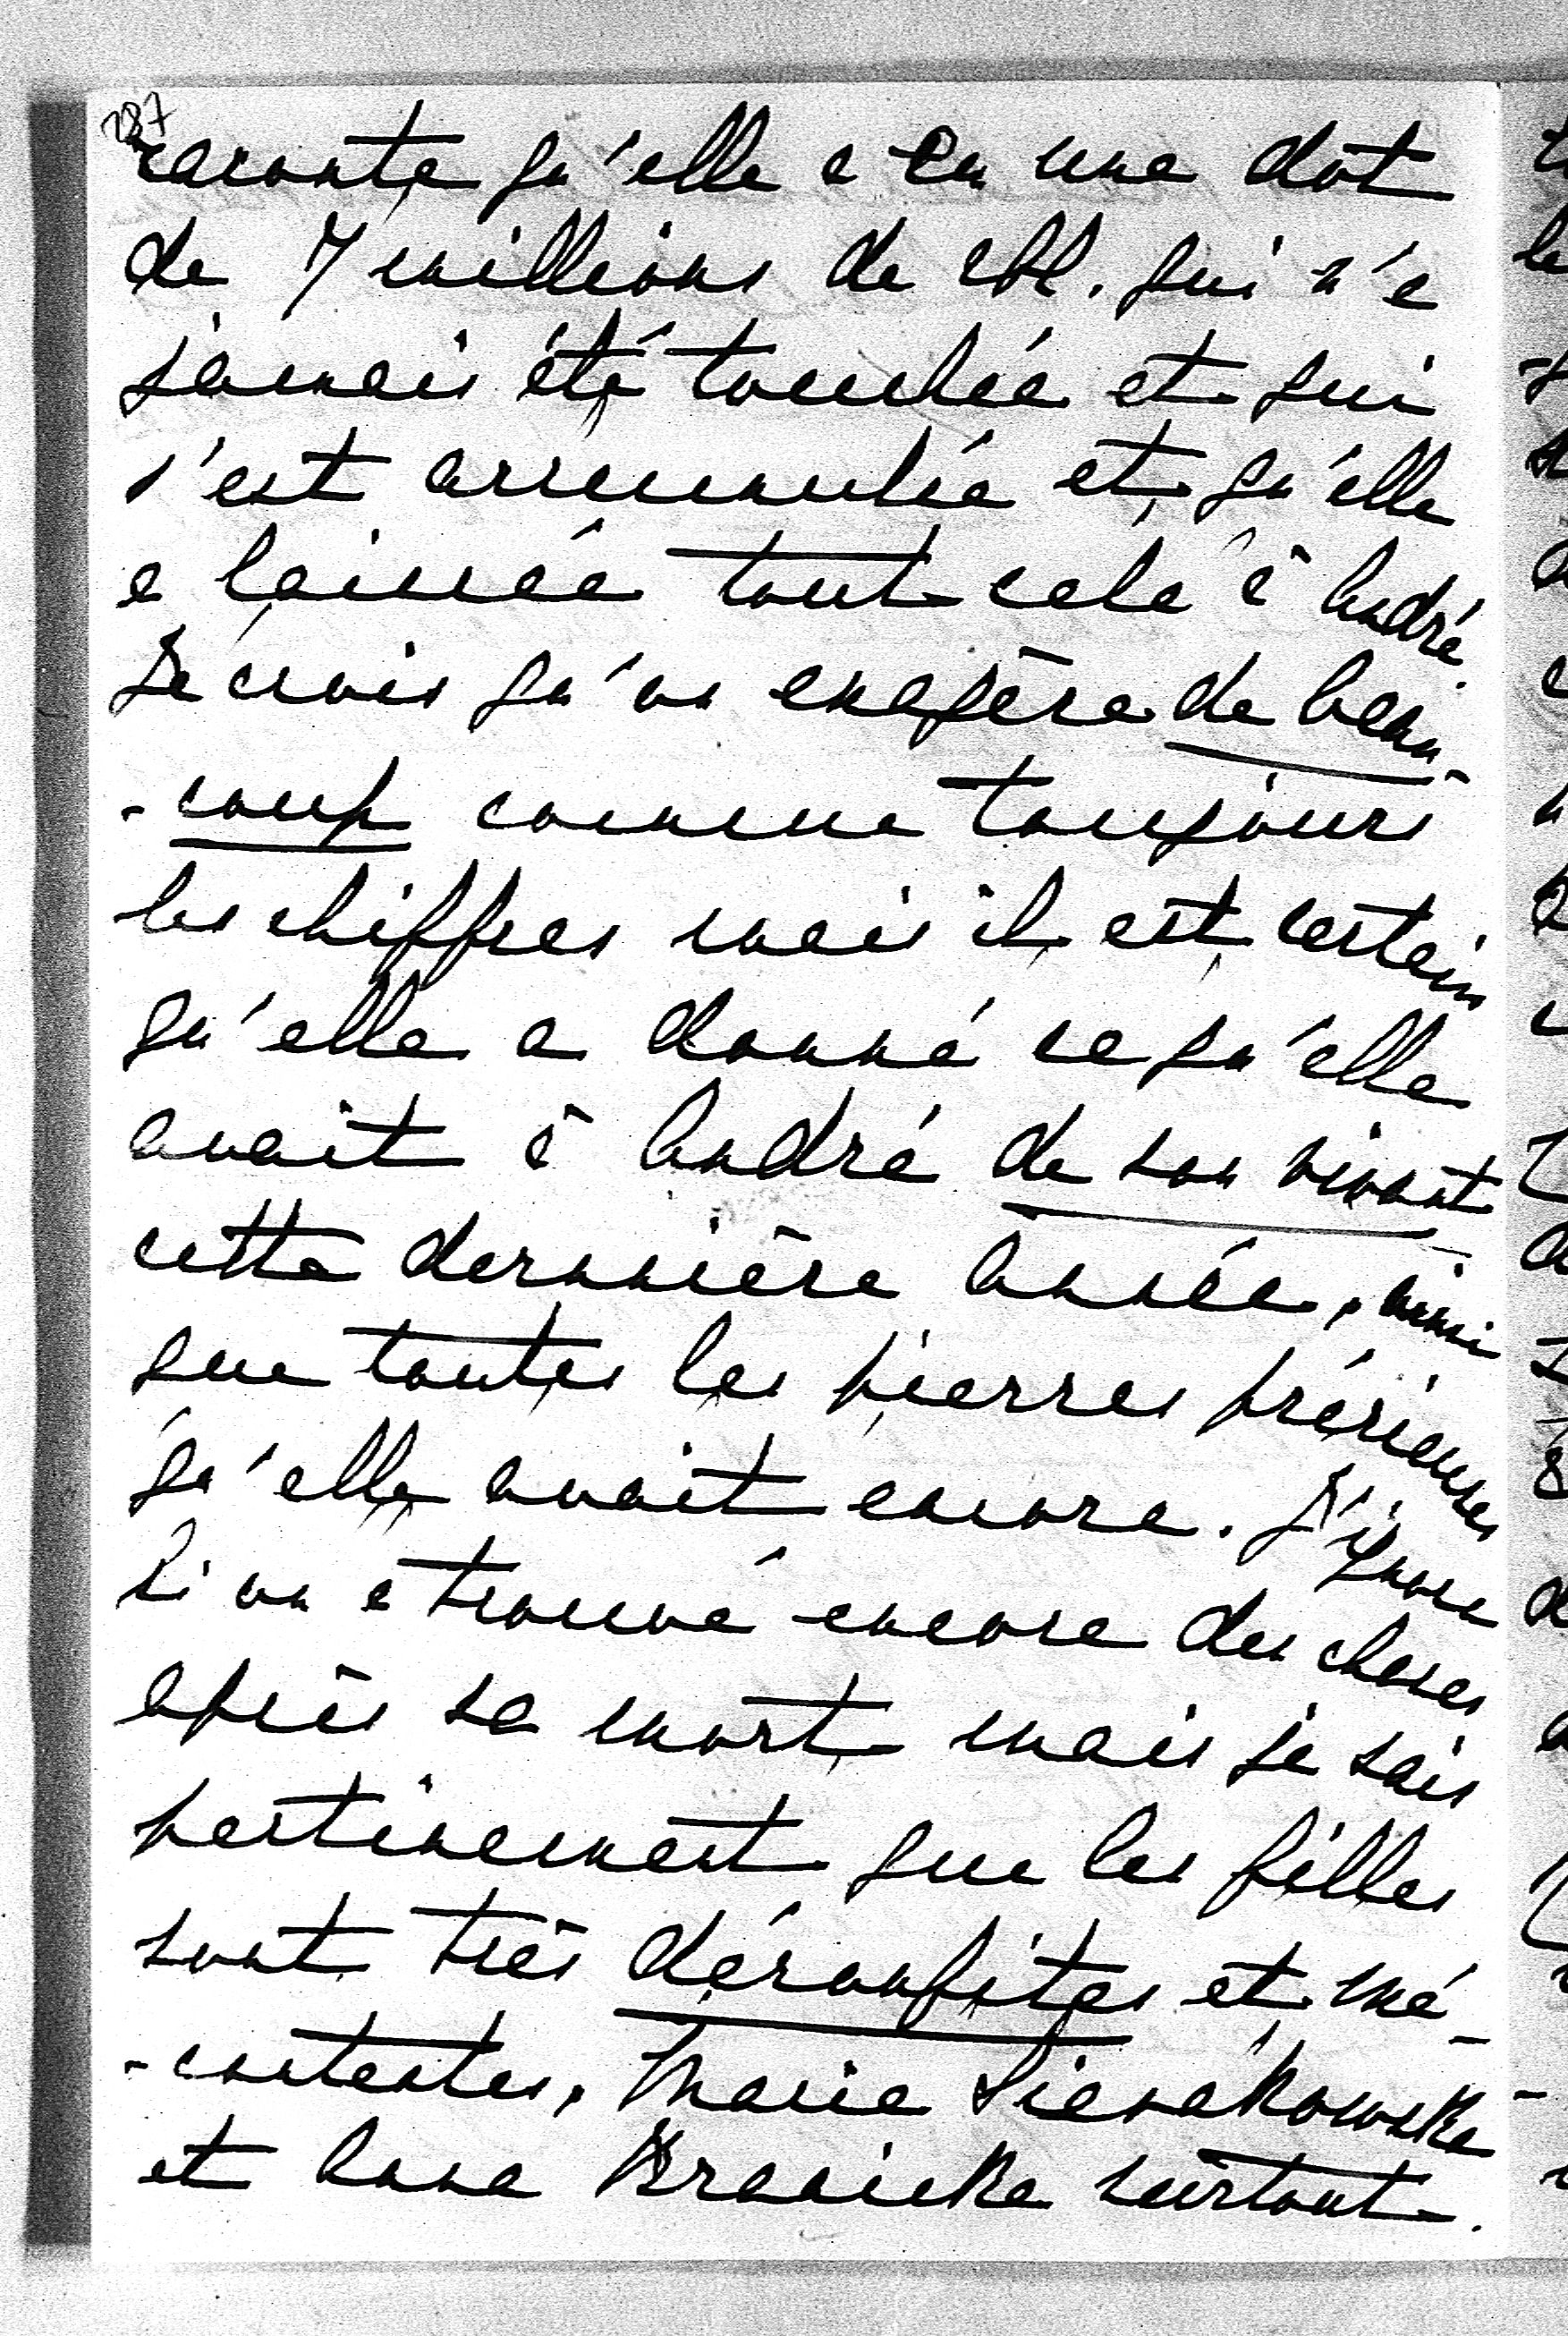 287
raconte qu'elle a eu une dot
de 7 millions de rbl. qui n'a
jamais été touchée et qui
s'est accumulée et qu'elle
a laissée tout cela à André.
Je crois qu'on exagère de beau-
-coup comme toujours
les chiffres mais il est certain
qu'elle a donné ce qu'elle
avait à André de son vivant
cette dernière année, ainsi
que toutes les pierres précieuses
qu'elle avait encore. J'ignore
si on a trouvé encore des choses
après sa mort mais je sais
pertinement que les filles
sont très déconfites et mé-
-contentes, Marie Sierakowska
et Anna Branicka surtout.